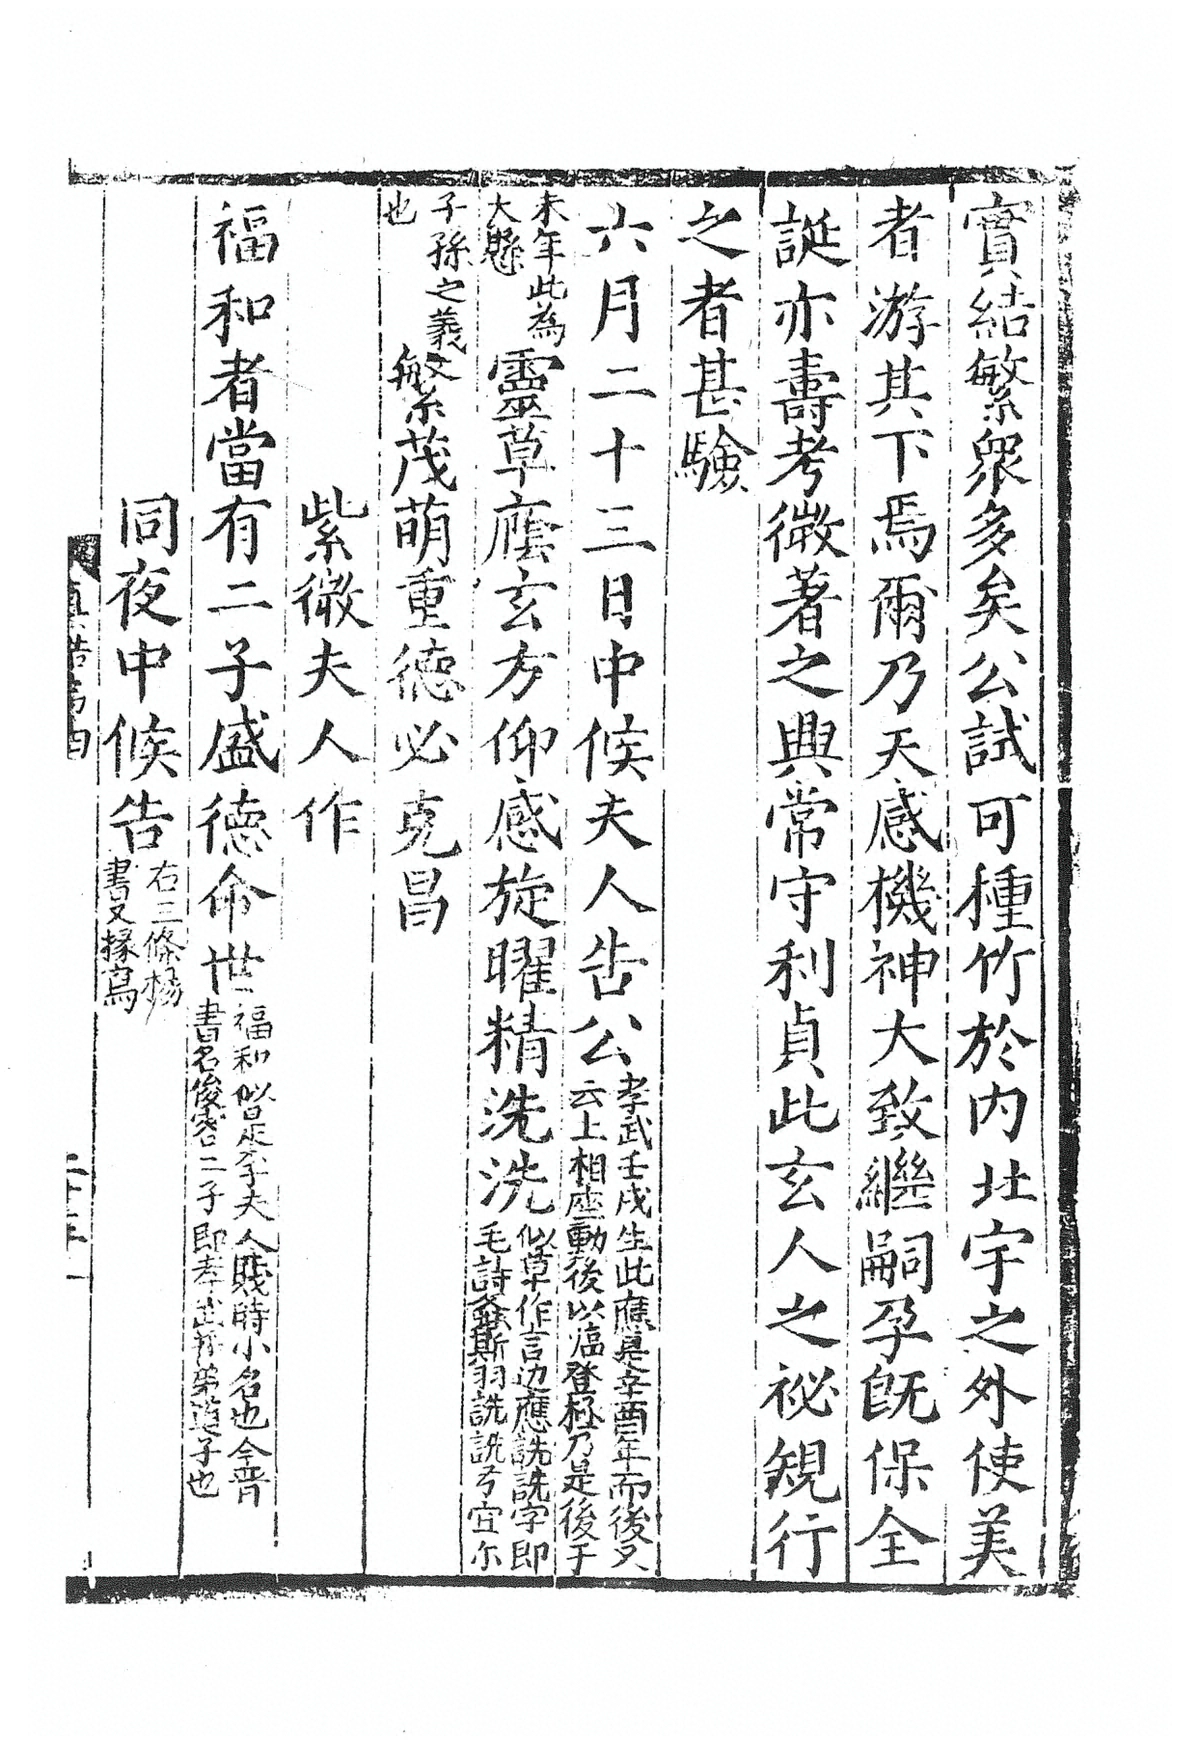 實結繁衆多矣公試可種竹於内北宇之外使美
者游其下焉爾乃天感機神大致繼嗣孕既保全
誕亦壽考微著之興常守利貞此玄人之祕規行
之者甚驗
六月二十三日中候夫人告公孝武壬戌生此應是辛酉年而後又
云上相座動後以癌登極乃是後于
未年此為
大懸靈草廕玄方仰感旋曜精洗洗似草作言边應詵詵字即
毛詩螽斯羽詵詵兮宜尔
子孫之義文
也繁茂萌重德必克昌
紫微夫人作
福和者當有二子盛德命世福和似是李夫人賤時小名也今晋
書名俊容二子即孝武并弟道子也
同夜中候告右三條楊
書又掾寫
真誥第四